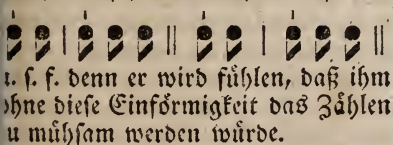 u. s. f. denn er wird fühlen, daß ihm
ohne diese Einförmigkeit das Zählen
zu mühsam werden würde.